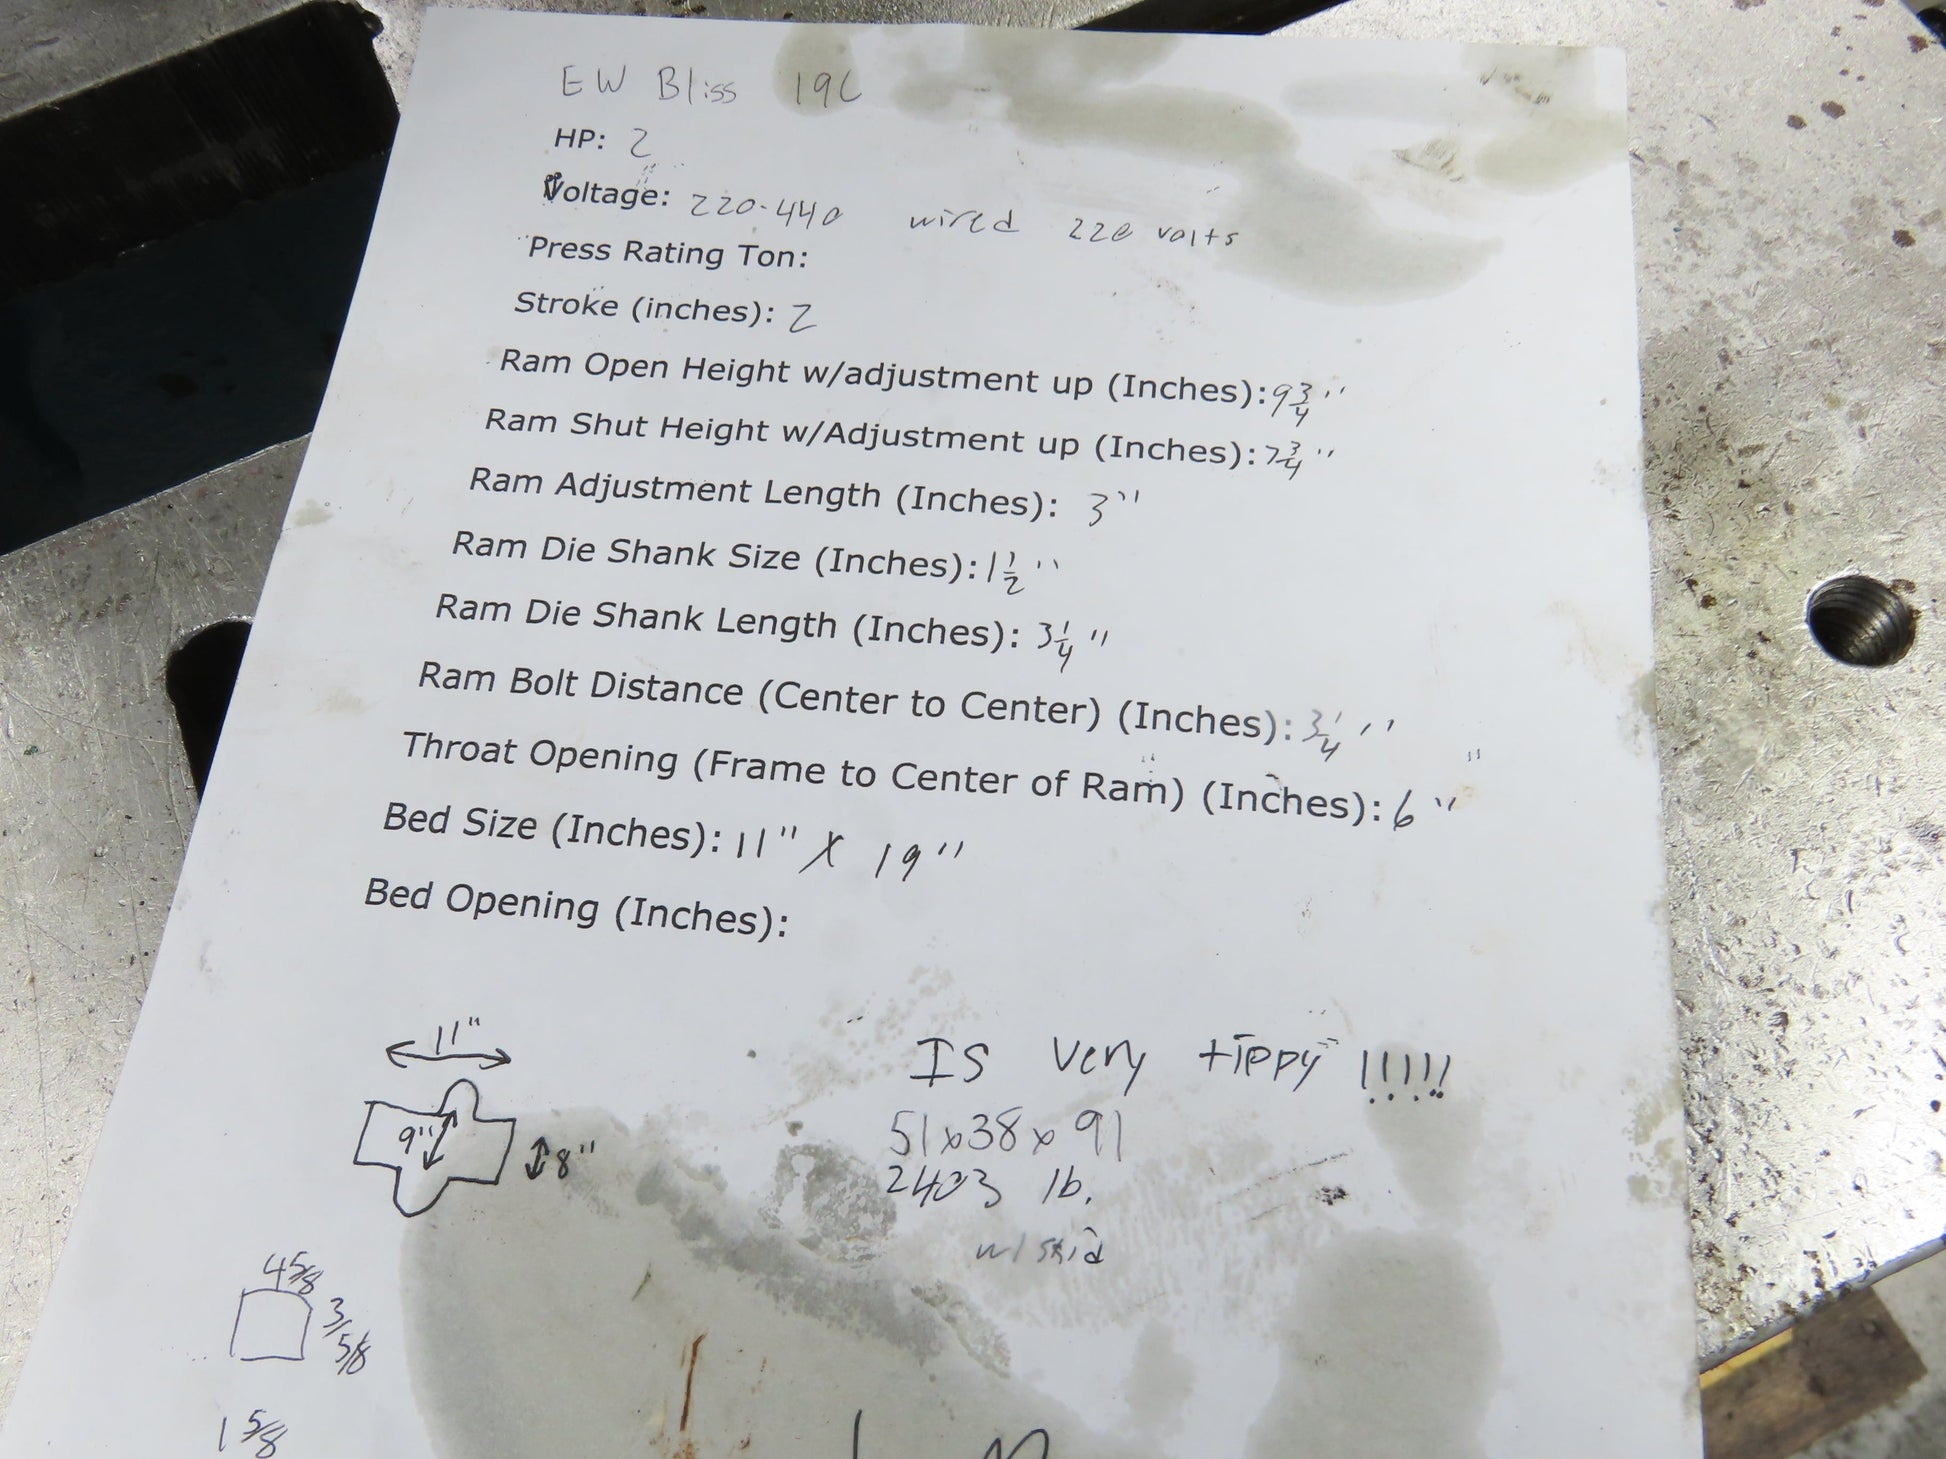 EW Bliss 19C
HP: 2
Voltage: 220-440 wired 220 volts
Press Rating Ton:
Stroke (inches): 2
Ram Open Height w/adjustment up (Inches): 9 3/4"
Ram Shut Height w/Adjustment up (Inches): 7 3/4"
Ram Adjustment Length (Inches): 3"
Ram Die Shank Size (Inches): 1 1/2"
Ram Die Shank Length (Inches): 3 1/4"
Ram Bolt Distance (Center to Center) (Inches): 3 1/4"
Throat Opening (Frame to Center of Ram) (Inches): 6"
Bed Size (Inches): 11" X 19"
Bed Opening (Inches):
11"
9"
8"
IS very tippy !!!!!
51x38x91
2403 lb.
w/ skid
4 5/8
3 5/8
1 5/8